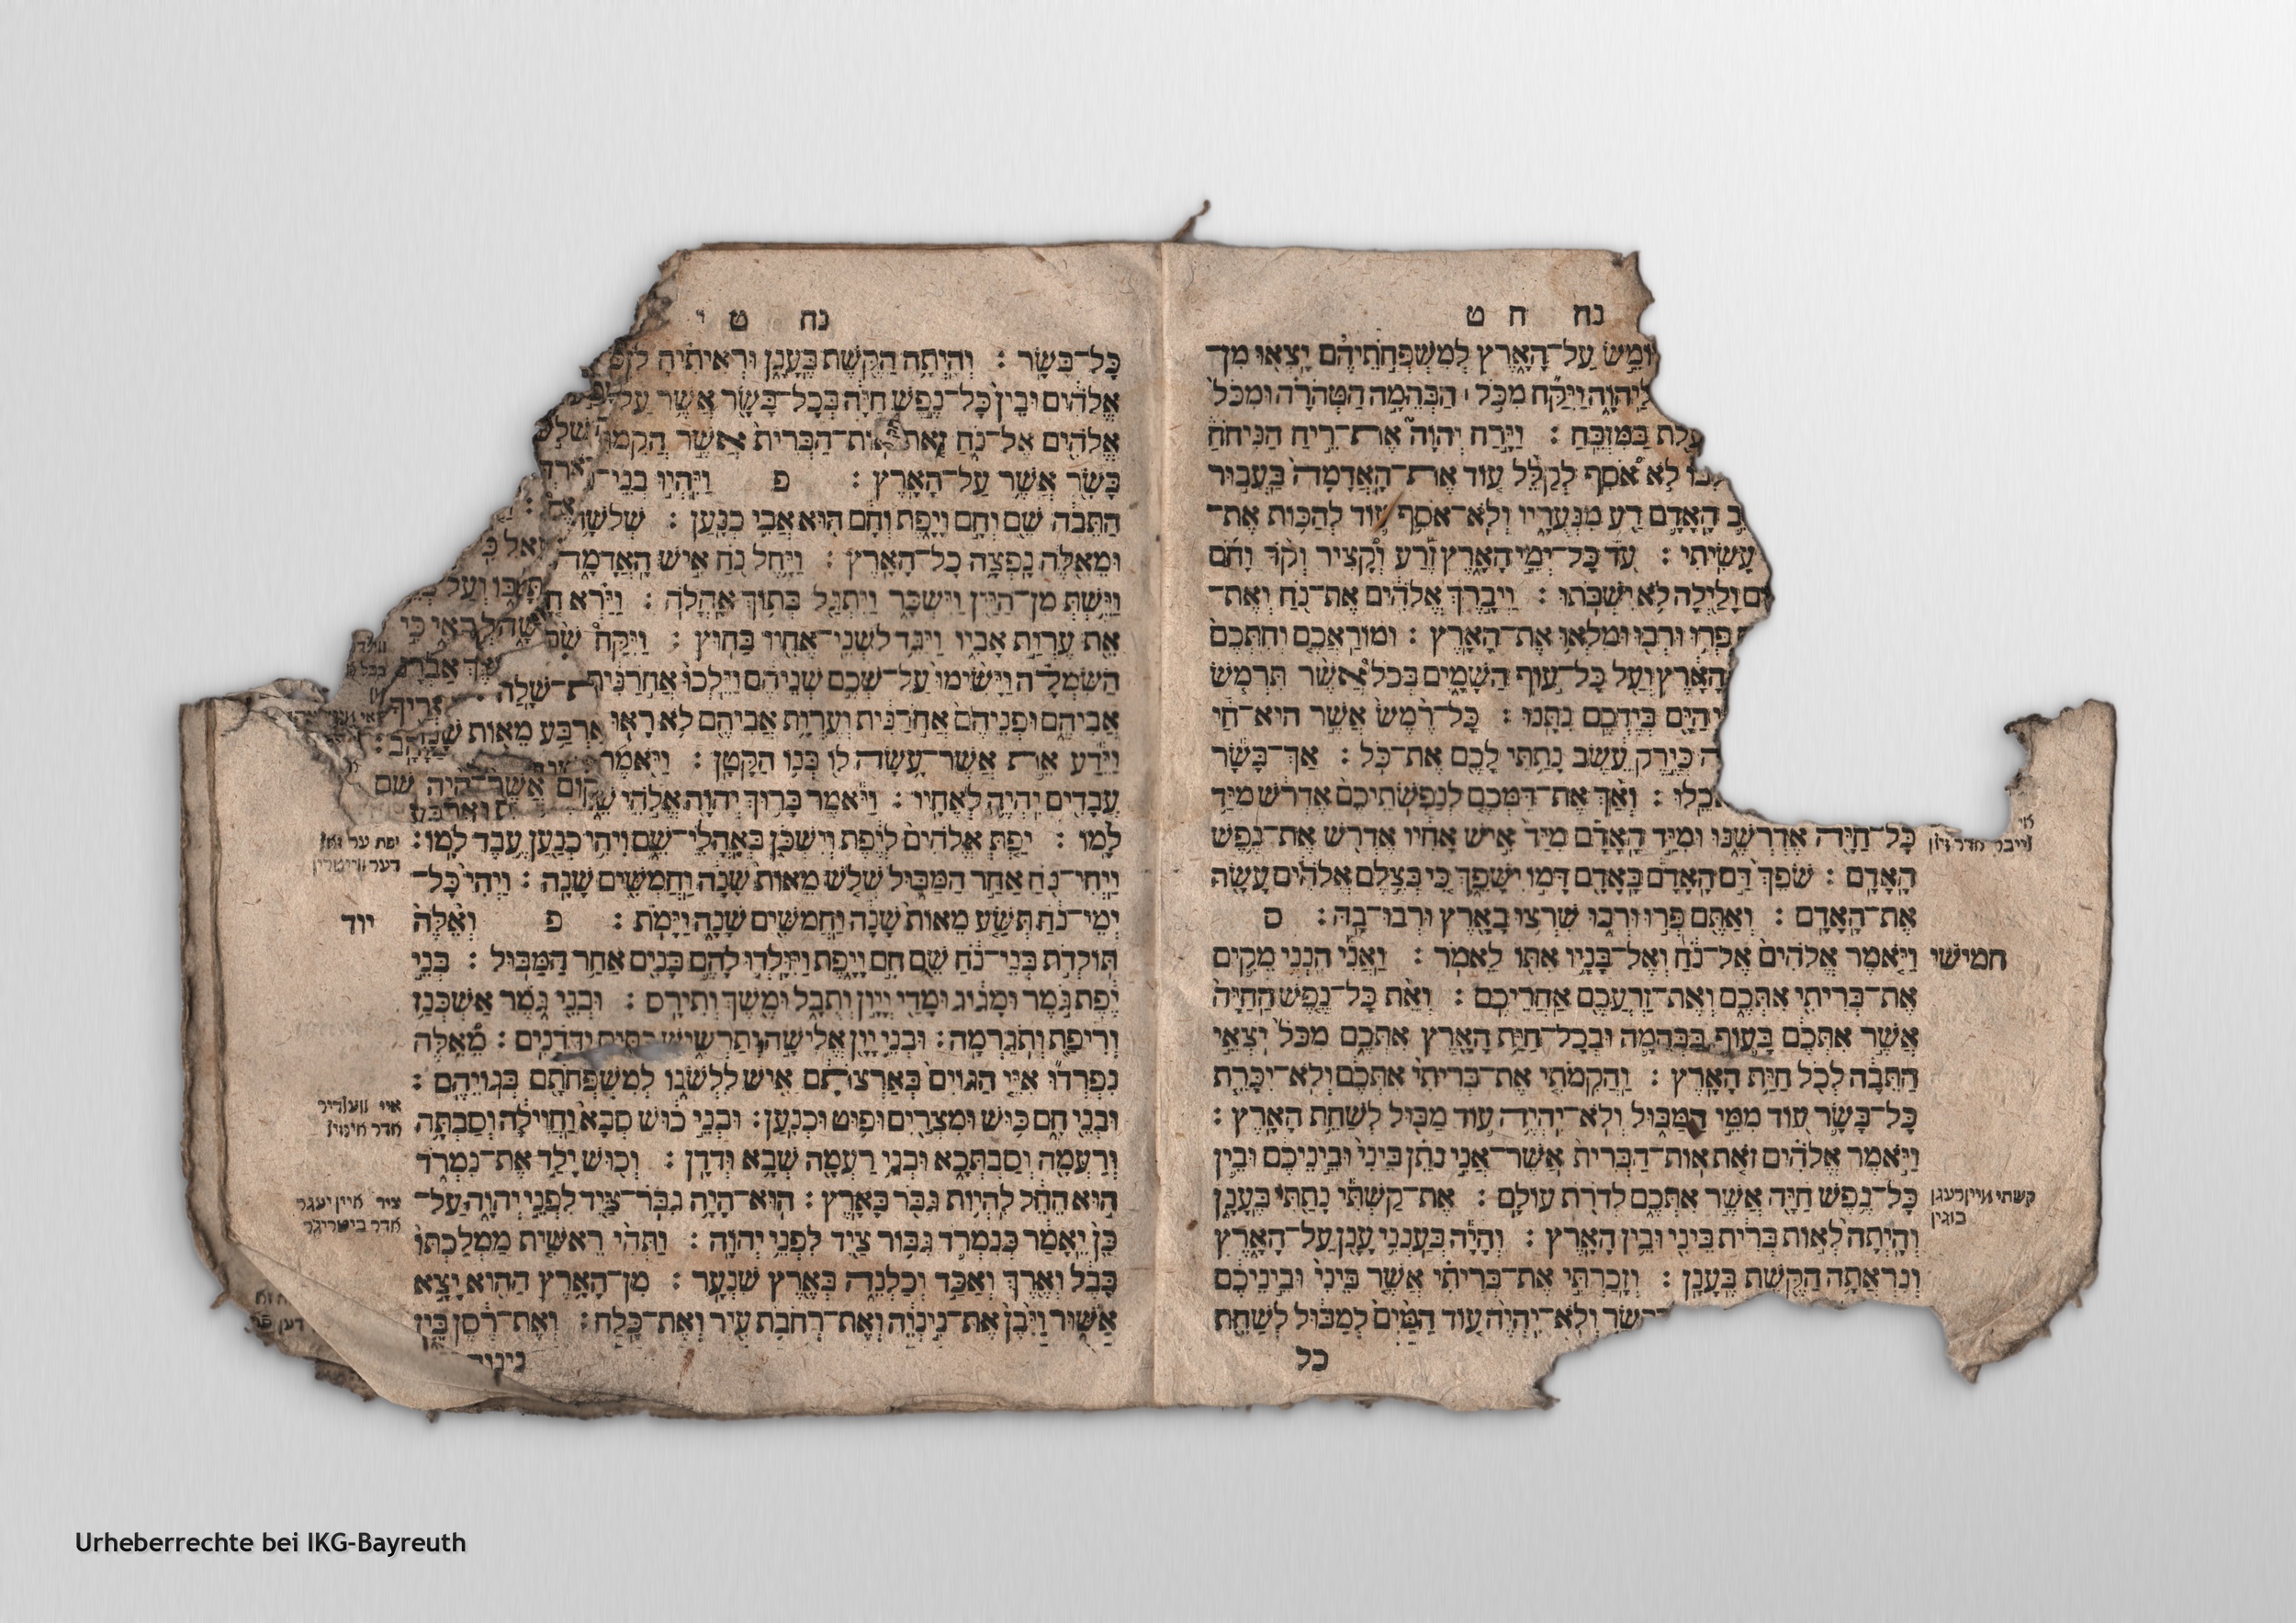 נח ח ט
על־הָאָרֶץ לְמִשְׁפְּחֹתֵיהֶם יָצְאוּ מִן־
לַיהוָה וַיִּקַּח מִכֹּל ׀ הַבְּהֵמָה הַטְּהֹרָה וּמִכֹּל
בַּמִּזְבֵּחַ : וַיָּרַח יְהוָה אֶת־רֵיחַ הַנִּיחֹחַ
לֹא אֹסִף לְקַלֵּל עוֹד אֶת־הָאֲדָמָה בַּעֲבוּר
הָאָדָם רַע מִנְּעֻרָיו וְלֹא־אֹסִף עוֹד לְהַכּוֹת אֶת־
עָשִׂיתִי : עֹד כָּל־יְמֵי הָאָרֶץ זֶרַע וְקָצִיר וְקֹר וָחֹם
וָלַיְלָה לֹא יִשְׁבֹּתוּ : וַיְבָרֶךְ אֱלֹהִים אֶת־נֹחַ וְאֶת־
פְּרוּ וּרְבוּ וּמִלְאוּ אֶת־הָאָרֶץ : וּמוֹרַאֲכֶם וְחִתְּכֶם
הָאָרֶץ וְעַל כָּל־עוֹף הַשָּׁמָיִם בְּכֹל אֲשֶׁר תִּרְמֹשׂ
הַיָּם בְּיֶדְכֶם נִתָּנוּ : כָּל־רֶמֶשׂ אֲשֶׁר הוּא־חַי
כְּיֶרֶק עֵשֶׂב נָתַתִּי לָכֶם אֶת־כֹּל : אַךְ־בָּשָׂר
וְאַךְ אֶת־דִּמְכֶם לְנַפְשֹׁתֵיכֶם אֶדְרֹשׁ מִיַּד
כָּל־חַיָּה אֶדְרְשֶׁנּוּ וּמִיַּד הָאָדָם מִיַּד אִישׁ אָחִיו אֶדְרֹשׁ אֶת־נֶפֶשׁ
הָאָדָם : שֹׁפֵךְ דַּם הָאָדָם בָּאָדָם דָּמוֹ יִשָּׁפֵךְ כִּי בְּצֶלֶם אֱלֹהִים עָשָׂה
אֶת־הָאָדָם : וְאַתֶּם פְּרוּ וּרְבוּ שִׁרְצוּ בָאָרֶץ וּרְבוּ־בָהּ : ס
חמישי וַיֹּאמֶר אֱלֹהִים אֶל־נֹחַ וְאֶל־בָּנָיו אִתּוֹ לֵאמֹר : וַאֲנִי הִנְנִי מֵקִים
אֶת־בְּרִיתִי אִתְּכֶם וְאֶת־זַרְעֲכֶם אַחֲרֵיכֶם : וְאֵת כָּל־נֶפֶשׁ הַחַיָּה
אֲשֶׁר אִתְּכֶם בָּעוֹף בַּבְּהֵמָה וּבְכָל־חַיַּת הָאָרֶץ אִתְּכֶם מִכֹּל יֹצְאֵי
הַתֵּבָה לְכֹל חַיַּת הָאָרֶץ : וַהֲקִמֹתִי אֶת־בְּרִיתִי אִתְּכֶם וְלֹא־יִכָּרֵת
כָּל־בָּשָׂר עוֹד מִמֵּי הַמַּבּוּל וְלֹא־יִהְיֶה עוֹד מַבּוּל לְשַׁחֵת הָאָרֶץ :
וַיֹּאמֶר אֱלֹהִים זֹאת אוֹת־הַבְּרִית אֲשֶׁר־אֲנִי נֹתֵן בֵּינִי וּבֵינֵיכֶם וּבֵין
כָּל־נֶפֶשׁ חַיָּה אֲשֶׁר אִתְּכֶם לְדֹרֹת עוֹלָם : אֶת־קַשְׁתִּי נָתַתִּי בֶּעָנָן
קשתי איין רעגן
בוגין
וְהָיְתָה לְאוֹת בְּרִית בֵּינִי וּבֵין הָאָרֶץ : וְהָיָה בְּעַנְנִי עָנָן עַל־הָאָרֶץ
וְנִרְאֲתָה הַקֶּשֶׁת בֶּעָנָן : וְזָכַרְתִּי אֶת־בְּרִיתִי אֲשֶׁר בֵּינִי וּבֵינֵיכֶם
וְלֹא־יִהְיֶה עוֹד הַמַּיִם לְמַבּוּל לְשַׁחֵת
כל
נח ט י
כָּל־בָּשָׂר : וְהָיְתָה הַקֶּשֶׁת בֶּעָנָן וּרְאִיתִיהָ
אֱלֹהִים וּבֵין כָּל־נֶפֶשׁ חַיָּה בְּכָל־בָּשָׂר אֲשֶׁר
אֱלֹהִים אֶל־נֹחַ זֹאת אוֹת־הַבְּרִית אֲשֶׁר
בָּשָׂר אֲשֶׁר עַל־הָאָרֶץ : פ וַיִּהְיוּ בְנֵי־
הַתֵּבָה שֵׁם וְחָם וָיָפֶת וְחָם הוּא אֲבִי כְנָעַן :
וּמֵאֵלֶּה נָפְצָה כָל־הָאָרֶץ : וַיָּחֶל נֹחַ אִישׁ הָאֲדָמָה
וַיֵּשְׁתְּ מִן־הַיַּיִן וַיִּשְׁכָּר וַיִּתְגַּל בְּתוֹךְ אָהֳלֹה : וַיַּרְא
אֵת עֶרְוַת אָבִיו וַיַּגֵּד לִשְׁנֵי־אֶחָיו בַּחוּץ : וַיִּקַּח שֵׁם
הַשִּׂמְלָה וַיָּשִׂימוּ עַל־שְׁכֶם שְׁנֵיהֶם וַיֵּלְכוּ אֲחֹרַנִּית
אֲבִיהֶם וּפְנֵיהֶם אֲחֹרַנִּית וְעֶרְוַת אֲבִיהֶם לֹא רָאוּ
וַיֵּדַע אֵת אֲשֶׁר־עָשָׂה לוֹ בְּנוֹ הַקָּטָן : וַיֹּאמֶר
עֲבָדִים יִהְיֶה לְאֶחָיו : וַיֹּאמֶר בָּרוּךְ יְהוָה אֱלֹהֵי
לָמוֹ : יַפְתְּ אֱלֹהִים לְיֶפֶת וְיִשְׁכֹּן בְּאָהֳלֵי־שֵׁם וִיהִי כְנַעַן עֶבֶד לָמוֹ :
וַיְחִי־נֹחַ אַחַר הַמַּבּוּל שְׁלֹשׁ מֵאוֹת שָׁנָה וַחֲמִשִּׁים שָׁנָה : וַיְהִי כָּל־
יְמֵי־נֹחַ תְּשַׁע מֵאוֹת שָׁנָה וַחֲמִשִּׁים שָׁנָה וַיָּמֹת : פ וְאֵלֶּה יוד
תּוֹלְדֹת בְּנֵי־נֹחַ שֵׁם חָם וָיָפֶת וַיִּוָּלְדוּ לָהֶם בָּנִים אַחַר הַמַּבּוּל : בְּנֵי
יֶפֶת גֹּמֶר וּמָגוֹג וּמָדַי וְיָוָן וְתֻבָל וּמֶשֶׁךְ וְתִירָס : וּבְנֵי גֹּמֶר אַשְׁכְּנַז
וְרִיפַת וְתֹגַרְמָה : וּבְנֵי יָוָן אֱלִישָׁה וְתַרְשִׁישׁ כִּתִּים וְדֹדָנִים : מֵאֵלֶּה
נִפְרְדוּ אִיֵּי הַגּוֹיִם בְּאַרְצֹתָם אִישׁ לִלְשֹׁנוֹ לְמִשְׁפְּחֹתָם בְּגוֹיֵהֶם :
וּבְנֵי חָם כּוּשׁ וּמִצְרַיִם וּפוּט וּכְנָעַן : וּבְנֵי כוּשׁ סְבָא וַחֲוִילָה וְסַבְתָּה
וְרַעְמָה וְסַבְתְּכָא וּבְנֵי רַעְמָה שְׁבָא וּדְדָן : וְכוּשׁ יָלַד אֶת־נִמְרֹד
הוּא הֵחֵל לִהְיוֹת גִּבֹּר בָּאָרֶץ : הוּא־הָיָה גִבֹּר־צַיִד לִפְנֵי יְהוָה עַל־
ציד איין יעגר
כֵּן יֵאָמַר כְּנִמְרֹד גִּבּוֹר צַיִד לִפְנֵי יְהוָה : וַתְּהִי רֵאשִׁית מַמְלַכְתּוֹ
בָּבֶל וְאֶרֶךְ וְאַכַּד וְכַלְנֵה בְּאֶרֶץ שִׁנְעָר : מִן־הָאָרֶץ הַהִוא יָצָא
אַשּׁוּר וַיִּבֶן אֶת־נִינְוֵה וְאֶת־רְחֹבֹת עִיר וְאֶת־כָּלַח : וְאֶת־רֶסֶן בֵּין
Urheberrechte bei IKG-Bayreuth